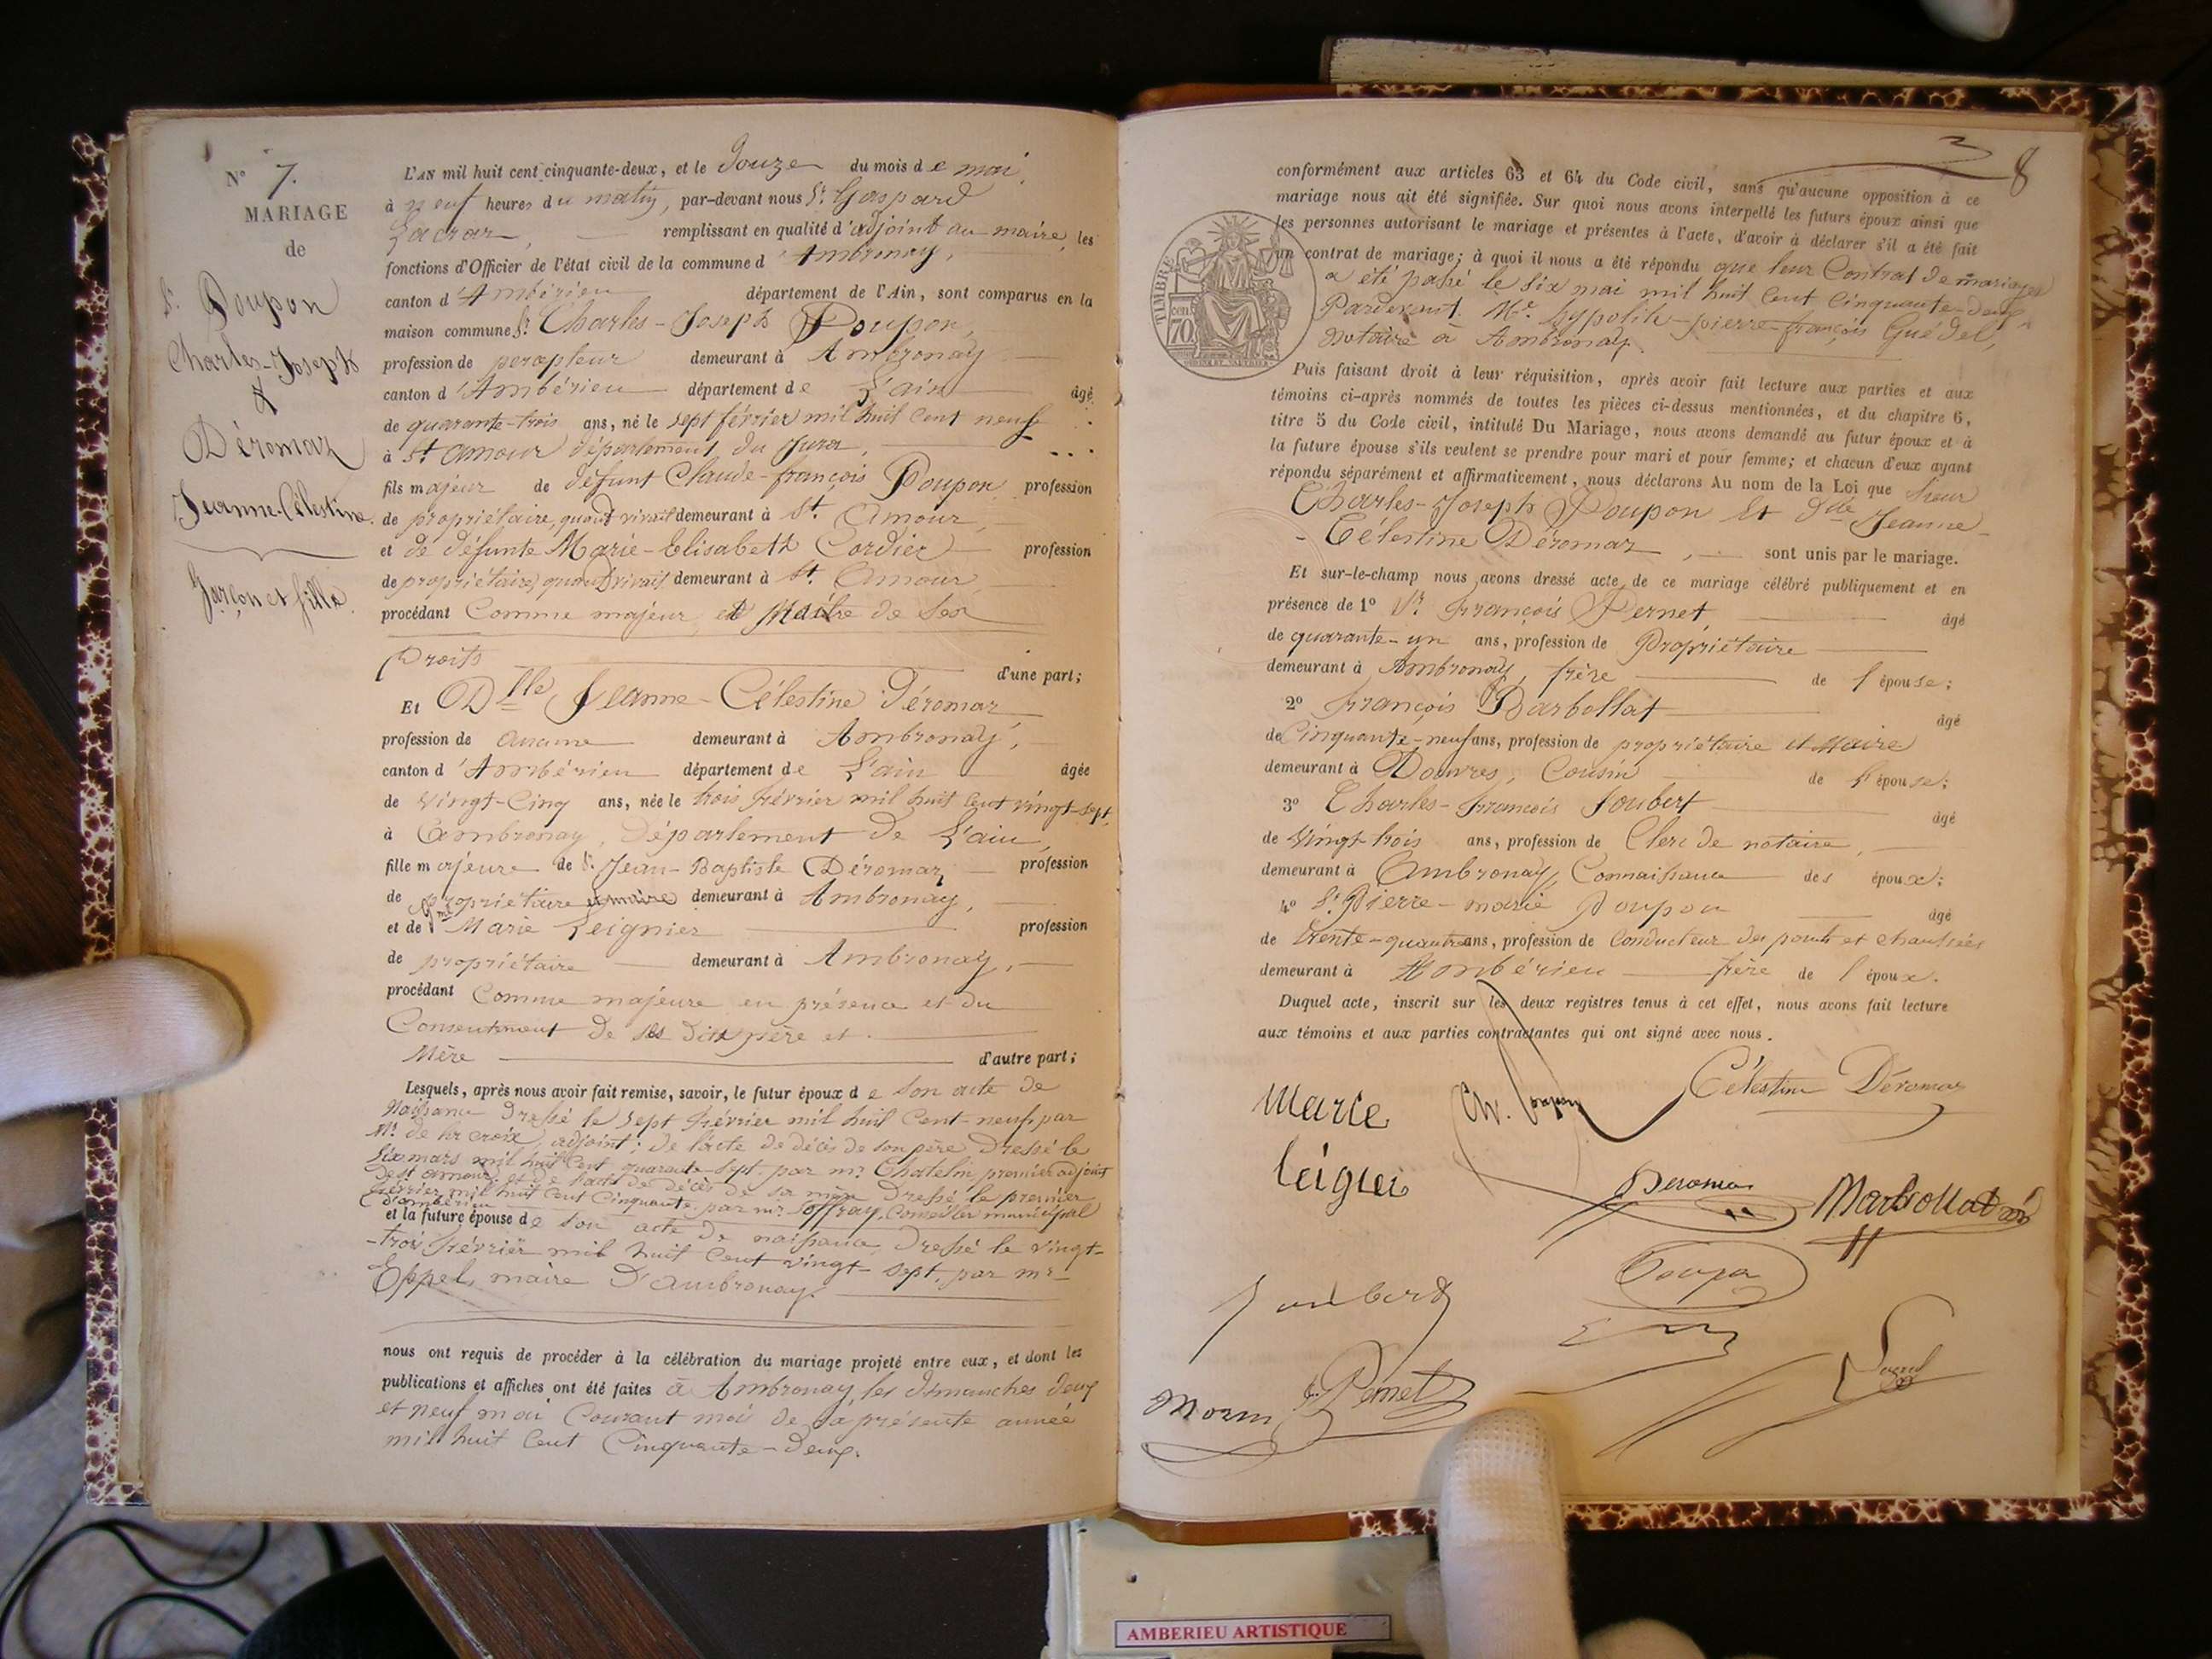 N° 7.
MARIAGE
de
Sr Poupon
Charles-Joseph
&
Déromaz
Jeanne-Célestine.
Garçon et fille.
L'AN mil huit cent cinquante-deux, et le Douze du mois de mai,
à neuf heures du matin, par-devant nous Sr Gaspard
remplissant en qualité d'adjoint au maire, les
fonctions d'Officier de l'état civil de la commune d'Ambronay,
canton d'Ambérieu département de l'Ain, sont comparus en la
maison commune Sr Charles-Joseph Poupon,
profession de percepteur demeurant à Ambronay
canton d'Ambérieu département de L'ain âgé
de quarante-trois ans, né le sept février mil huit cent neuf
à St. amour département du Jura,
fils majeur de défunt Claude-françois Poupon profession
de propriétaire, quand vivait demeurant à St. Amour,
et de défunte Marie-Elisabeth Cordier profession
de propriétaire, quand vivait demeurant à St. Amour,
procédant Comme majeur et Maître de Ses
Droits d'une part;
Et Dlle Jeanne-Célestine Déromaz,
profession de aucune demeurant à Ambronay,
canton d'Ambérieu département de L'ain âgée
de vingt-Cinq ans, née le trois février mil huit cent vingt-sept,
à Ambronay, Département de L'ain,
fille majeure de Sr Jean-Baptiste Déromaz profession
de propriétaire demeurant à Ambronay,
et de Marie Leignier profession
de propriétaire demeurant à Ambronay,
procédant Comme majeure en présence et du
Consentement de ses dits père et
Mère d'autre part;
Lesquels, après nous avoir fait remise, savoir, le futur époux de Son acte de
Naissance dressé le sept février mil huit cent-neuf, par
Mr. de la croix, adjoint; de l'acte de décès de son père Dressé le
Six mars mil huit Cent quarante-sept par mr Chatelin premier adjoint
de St amour et de l'acte de décès de sa mère Dressé le premier
février mil huit cent Cinquante par mr. Soffray, Conseiller municipal
d'ambérieu
et la future épouse de son acte de naissance, Dressé le vingt-
-trois février mil huit cent vingt-sept, par mr
Eppel, maire D'Ambronay.
nous ont requis de procéder à la célébration du mariage projeté entre eux, et dont les
publications et affiches ont été faites à Ambronay, les dimanches deux
et neuf mai Courant mois de la présente année
mil huit Cent Cinquante-Deux.
8
conformément aux articles 63 et 64 du Code civil, sans qu'aucune opposition à ce
mariage nous ait été signifiée. Sur quoi nous avons interpellé les futurs époux ainsi que
les personnes autorisant le mariage et présentes à l'acte, d'avoir à déclarer s'il a été fait
un contrat de mariage; à quoi il nous a été répondu que leur Contrat de mariage
a été passé le six mai mil huit Cent Cinquante-deux
Pardevant Me. hypolite-pierre-françois Guédel,
Notaire à Ambronay.
TIMBRE
70
Puis faisant droit à leur réquisition, après avoir fait lecture aux parties et aux
témoins ci-après nommés de toutes les pièces ci-dessus mentionnées, et du chapitre 6,
titre 5 du Code civil, intitulé Du Mariage, nous avons demandé au futur époux et à
la future épouse s'ils veulent se prendre pour mari et pour femme; et chacun d'eux ayant
répondu séparément et affirmativement, nous déclarons Au nom de la Loi que Sieur
Charles-Joseph Poupon Et Dlle Jeanne-
-Célestine Déromaz, sont unis par le mariage.
Et sur-le-champ nous avons dressé acte de ce mariage célébré publiquement et en
présence de 1° Sr François Pernet, âgé
de quarante-un ans, profession de Propriétaire
demeurant à Ambronay, frère de l'épouse;
2° François Barbollat âgé
de Cinquante-neuf ans, profession de propriétaire et Maire
demeurant à Douvres, Cousin de l'épouse;
3° Charles-François Joubert âgé
de vingt-trois ans, profession de Clerc de notaire,
demeurant à Ambronay, Connaissance des époux;
4° Sr Pierre-marie Poupon âgé
de trente-quatre ans, profession de Conducteur des ponts et chaussées
demeurant à Ambérieu frère de l'époux.
Duquel acte, inscrit sur les deux registres tenus à cet effet, nous avons fait lecture
aux témoins et aux parties contractantes qui ont signé avec nous.
Célestine Déromaz
Marie
Ch. Poupon
leignier
Deromas
Joubert
Poupon
Pernet
Morin
AMBERIEU ARTISTIQUE